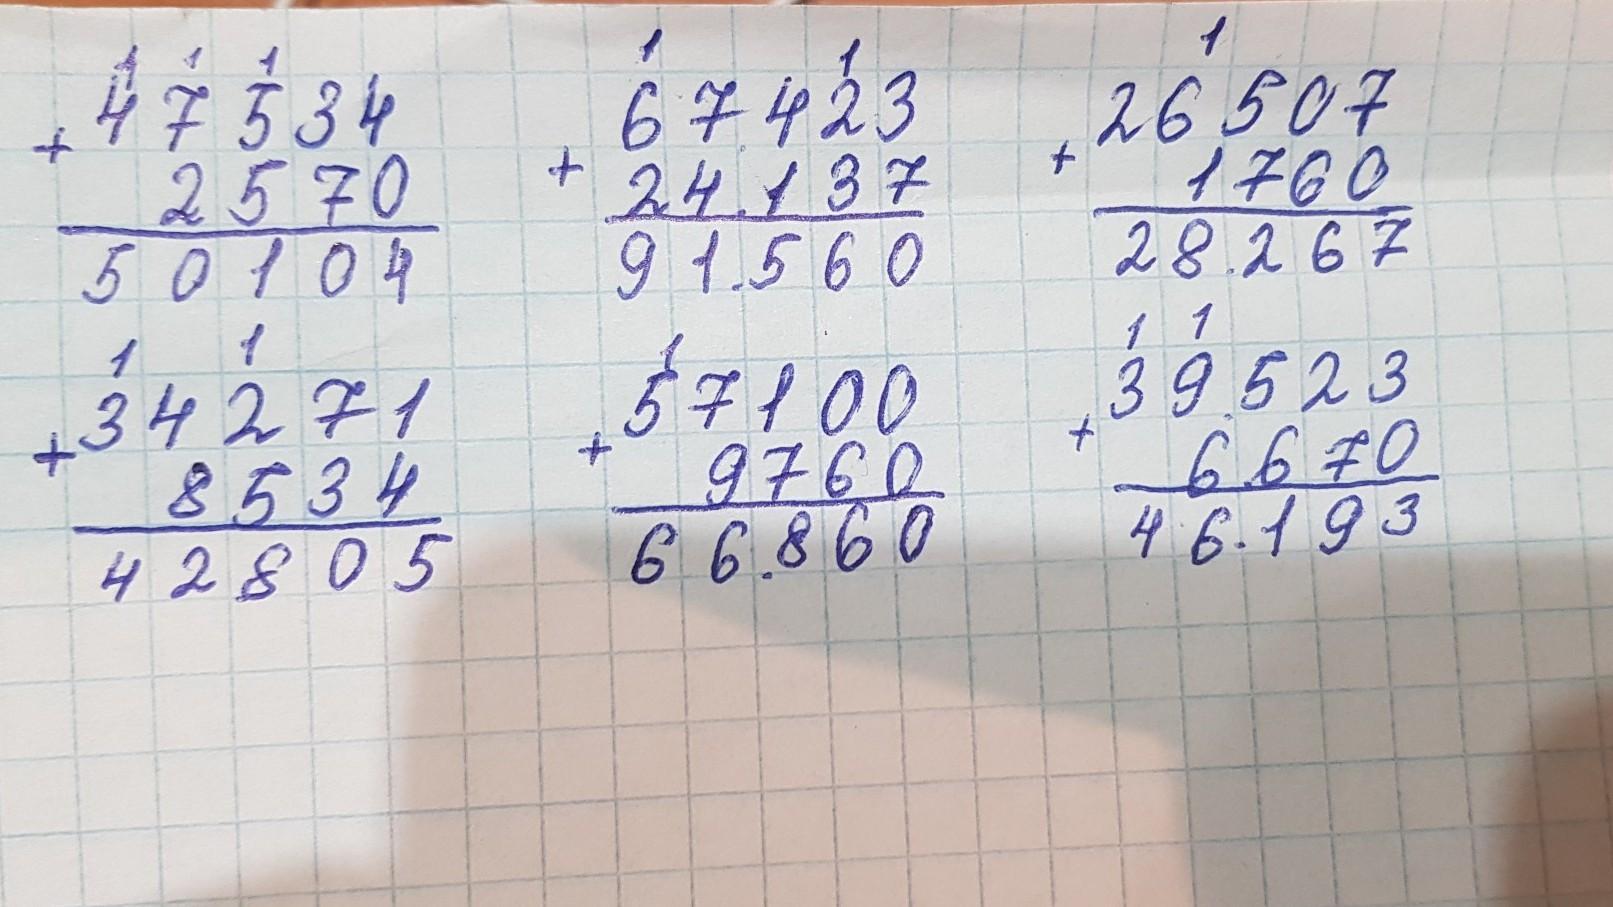 1 1 1
47534
+
2570
50104
1 1
67.423
+
24.137
91.560
1
26507
+
1760
28.267
1 1
34271
+
8534
42805
1
57100
+
9760
66.860
1 1
39.523
+
6.670
46.193